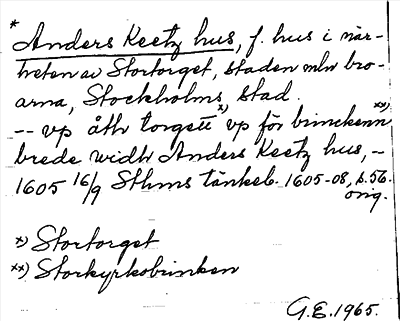 * Anders Keetz hus, f. hus i när-
heten av Stortorget, staden mln bro-
arna, Stockholms stad.
-- vp åth torgett x) vp för brinckenn xx)
brede widh Anders Keetz hus, -
1605 16/9 Sthms tänkeb. 1605-08, s. 56.
orig.
x) Stortorget
xx) Storkyrkobrinken
G.E. 1965.